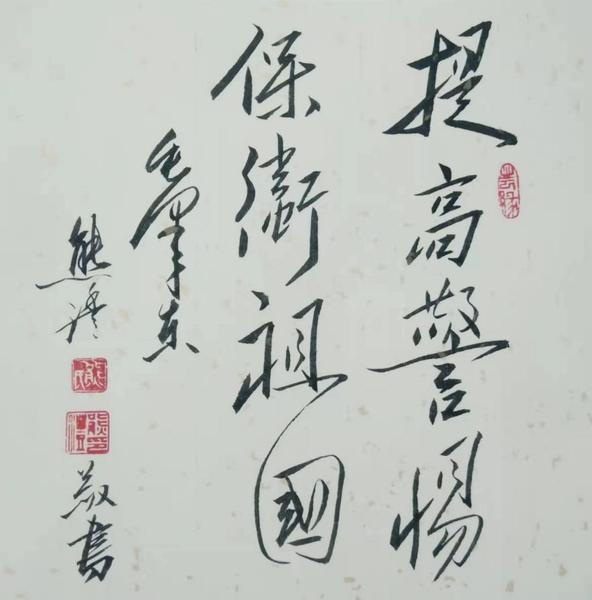 提高警惕
保衛祖國
毛澤东
熊
敬書